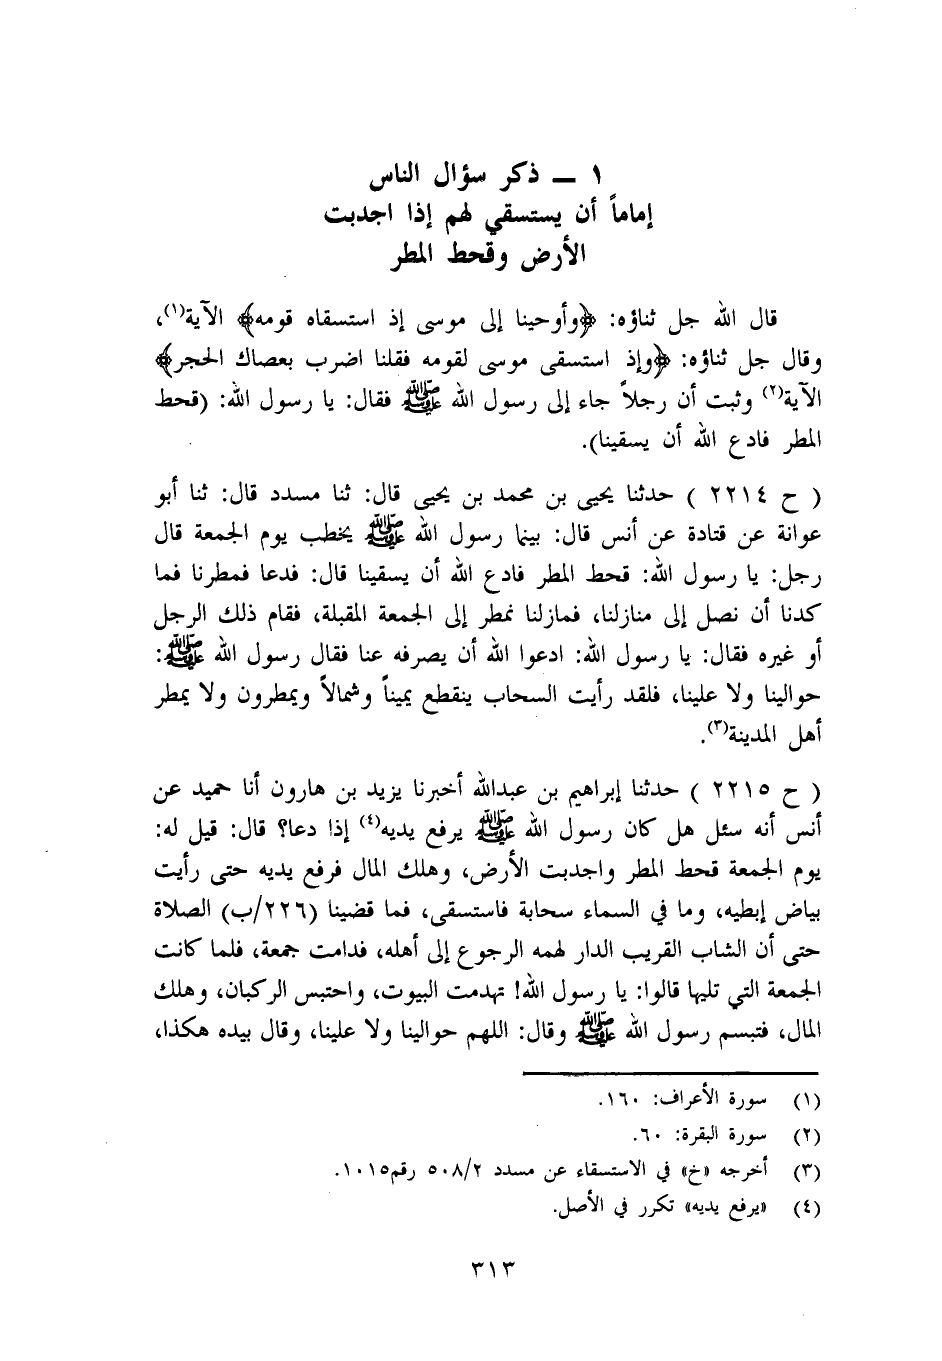 ١ ــ ذكر سؤال الناس
إماماً أن يستسقي لهم إذا اجدبت
الأرض وقحط المطر
قال الله جل ثناؤه: ﴿وأوحينا إلى موسى إذ استسقاه قومه﴾ الآية(١)،
وقال جل ثناؤه: ﴿وإذ استسقى موسى لقومه فقلنا اضرب بعصاك الحجر﴾
الآية(٢) وثبت أن رجلاً جاء إلى رسول الله ﷺ فقال: يا رسول الله: (قحط
المطر فادع الله أن يسقينا).
( ح ٢٢١٤ ) حدثنا يحيى بن محمد بن يحيى قال: ثنا مسدد قال: ثنا أبو
عوانة عن قتادة عن أنس قال: بينما رسول الله ﷺ يخطب يوم الجمعة قال
رجل: يا رسول الله: قحط المطر فادع الله أن يسقينا قال: فدعا فمطرنا فما
كدنا أن نصل إلى منازلنا، فمازلنا نمطر إلى الجمعة المقبلة، فقام ذلك الرجل
أو غيره فقال: يا رسول الله: ادعوا الله أن يصرفه عنا فقال رسول الله ﷺ:
حوالينا ولا علينا، فلقد رأيت السحاب ينقطع يميناً وشمالاً ويمطرون ولا يمطر
أهل المدينة(٣).
( ح ٢٢١٥ ) حدثنا إبراهيم بن عبدالله أخبرنا يزيد بن هارون أنا حميد عن
أنس أنه سئل هل كان رسول الله ﷺ يرفع يديه(٤) إذا دعا؟ قال: قيل له:
يوم الجمعة قحط المطر واجدبت الأرض، وهلك المال فرفع يديه حتى رأيت
بياض إبطيه، وما في السماء سحابة فاستسقى، فما قضينا (٢٢٦/ب) الصلاة
حتى أن الشاب القريب الدار لهمه الرجوع إلى أهله، فدامت جمعة، فلما كانت
الجمعة التي تليها قالوا: يا رسول الله! تهدمت البيوت، واحتبس الركبان، وهلك
المال، فتبسم رسول الله ﷺ وقال: اللهم حوالينا ولا علينا، وقال بيده هكذا،
(١) سورة الأعراف: ١٦٠.
(٢) سورة البقرة: ٦٠.
(٣) أخرجه «خ» في الاستسقاء عن مسدد ٥٠٨/٢ رقم١٠١٥.
(٤) «يرفع يديه» تكرر في الأصل.
٣١٣